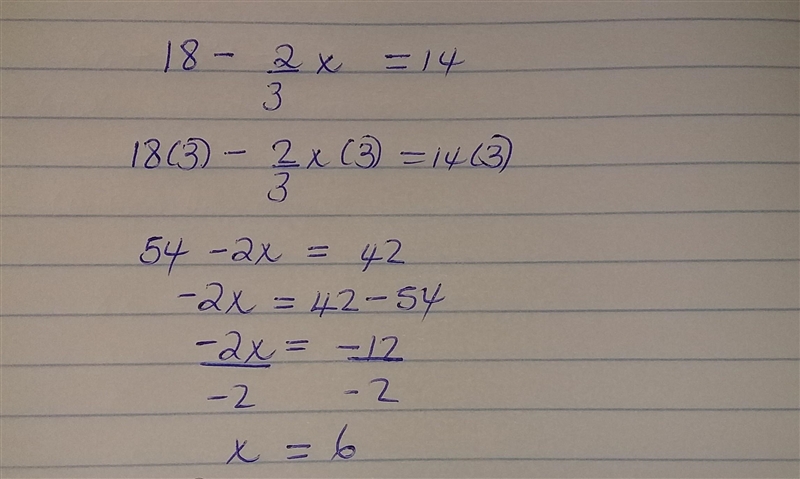 18 - 2/3 x = 14
18(3) - 2/3 x (3) = 14(3)
54 - 2x = 42
-2x = 42 - 54
-2x/-2 = -12/-2
x = 6